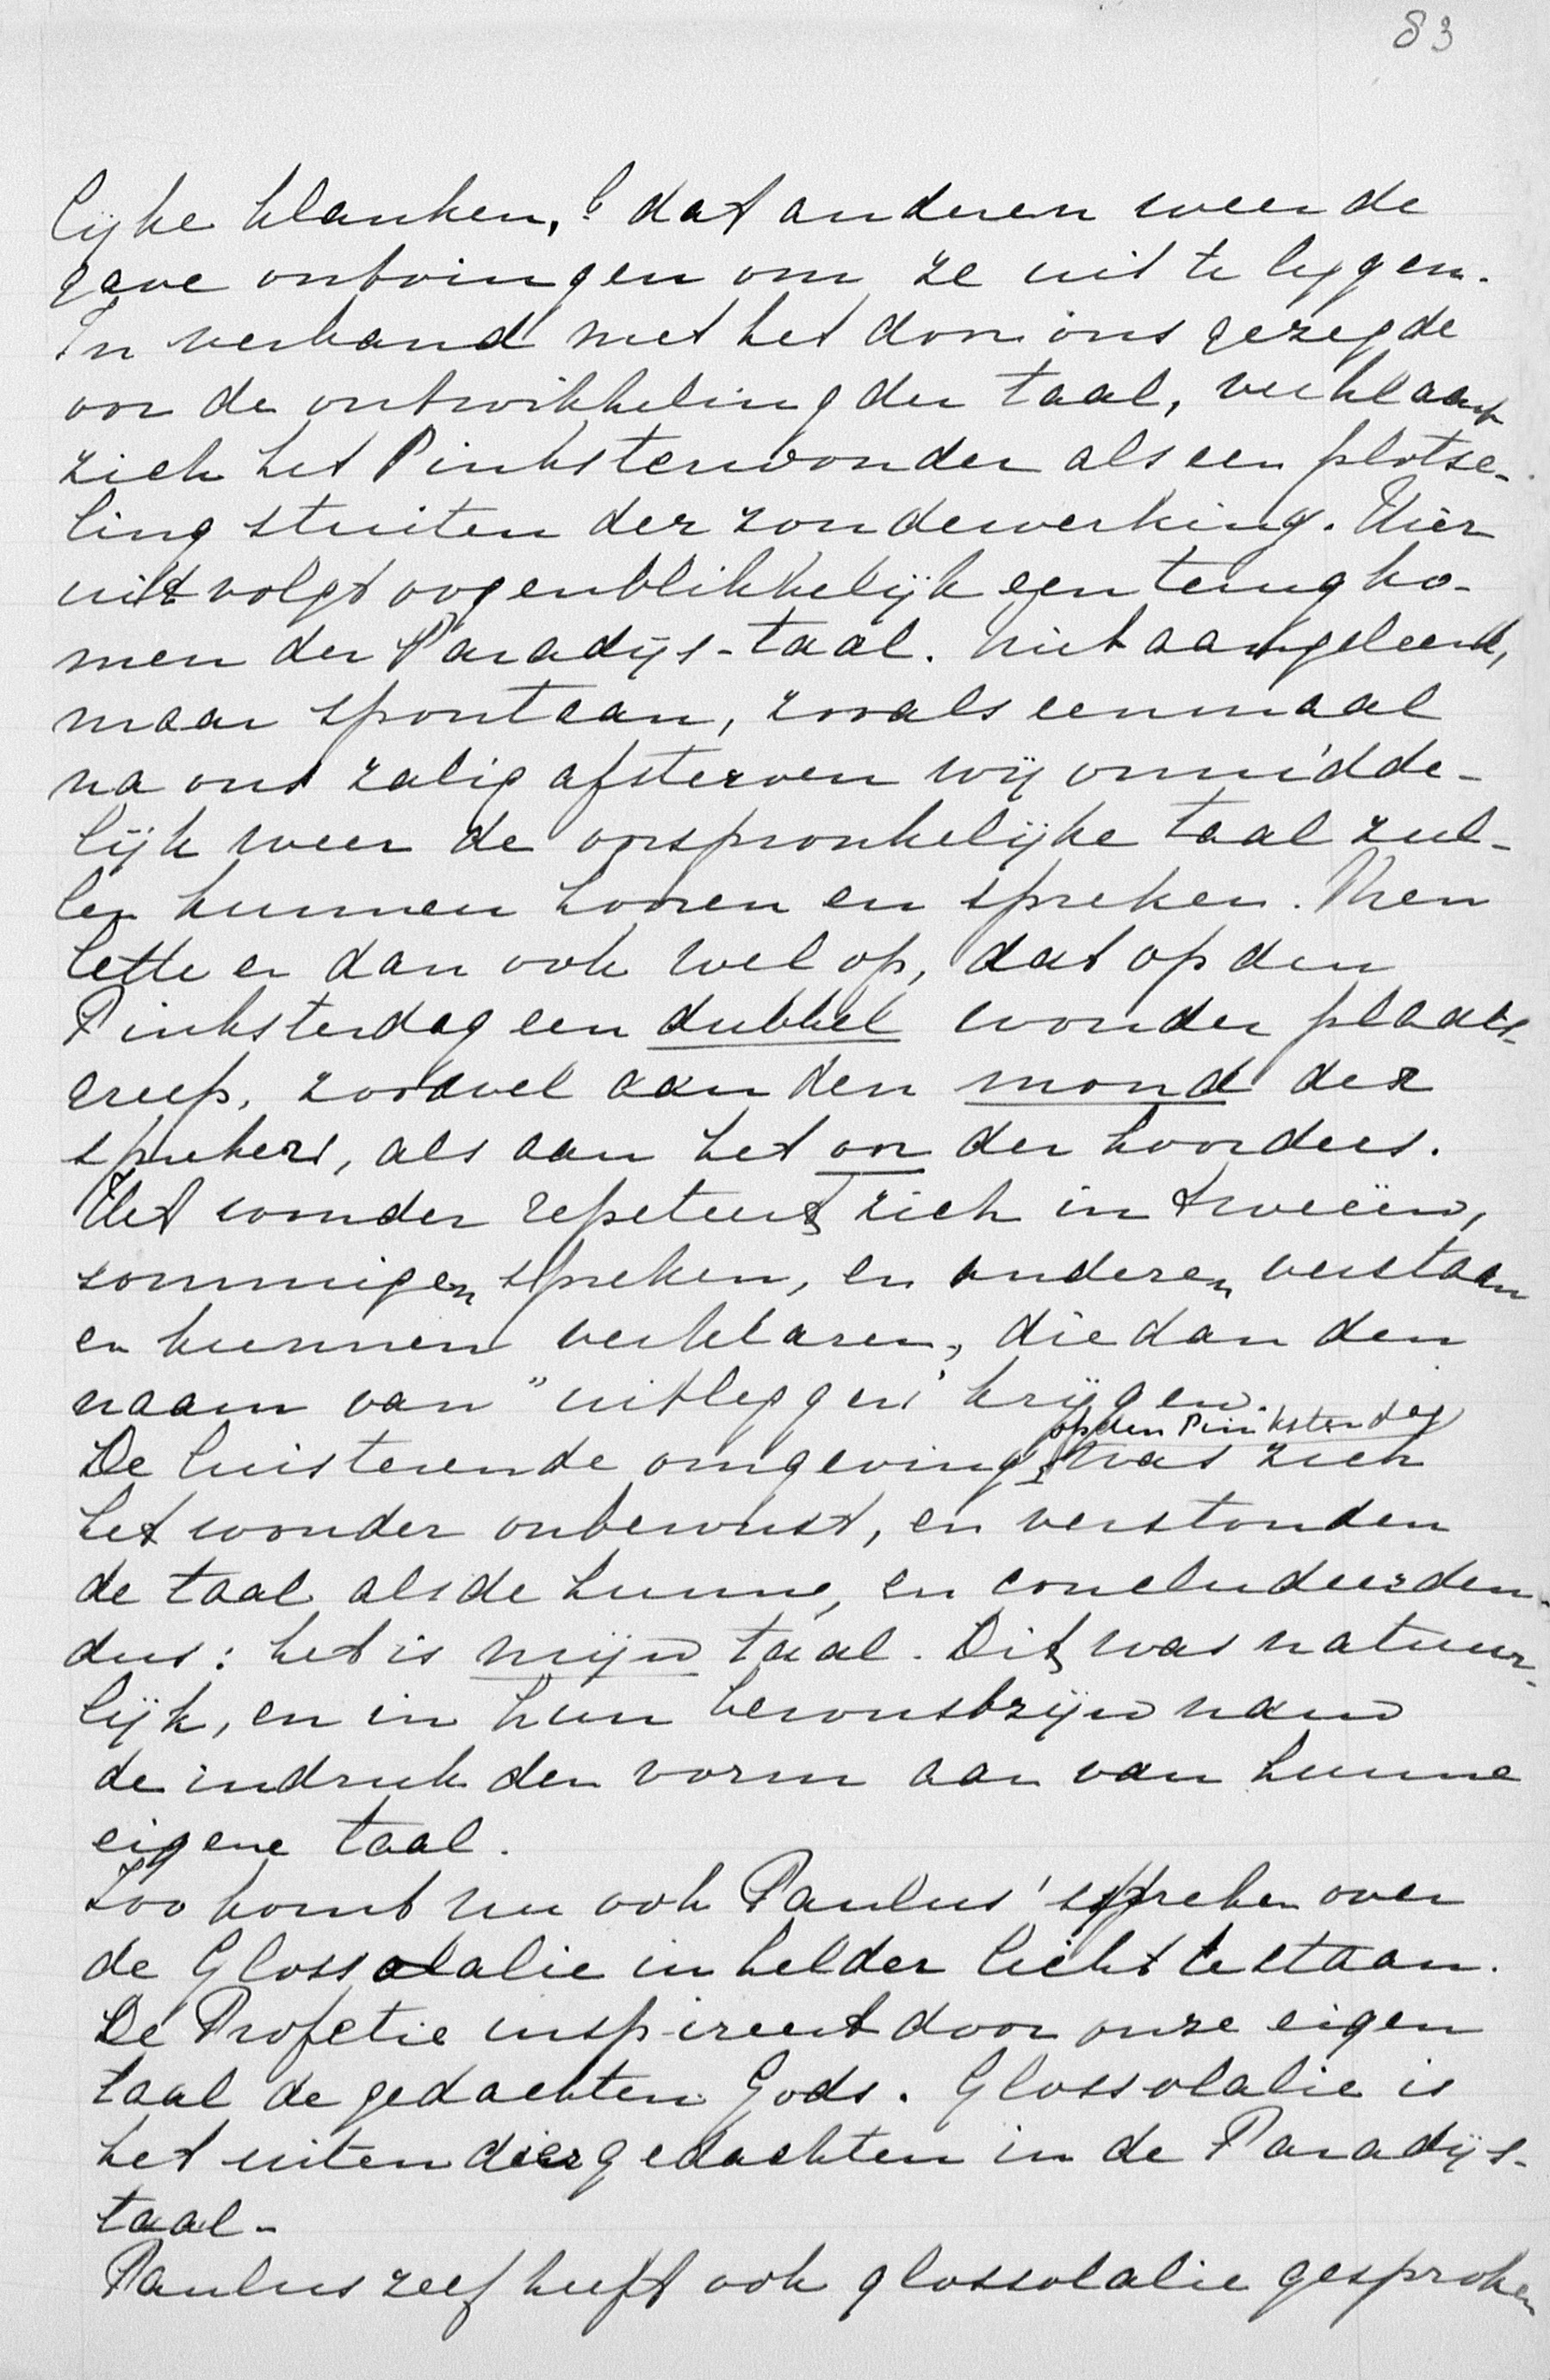 83
lijke klanken, & dat anderen weer de
gave ontvingen om ze uit te leggen.
In verband met het door ons gezegde
over de ontwikkeling der taal, verklaart
zich het Pinksterwonder als een plotse-
ling stuiten der zondewerking. Hier
uit volgt oogenblikkelijk een terugko-
men der Paradijs-taal. Niet aangeleerd,
maar spontaan, zooals eenmaal
na ons zalig afsterven wij onmidde-
lijk weer de oorspronkelijke taal zul-
len kunnen hooren en spreken. Men
lette er dan ook wel op, dat op den
Pinksterdag een dubbel wonder plaats-
greep, zoowel aan den mond der
sprekers, als aan het oor der hoorders.
Het wonder repeteert zich in tweeën,
sommigen spreken, en anderen verstaan
en kunnen verklaren, die dan den
naam van "uitleggers" krijgen.
op den Pinksterdag
De luisterende omgeving was zich
het wonder onbewust, en verstonden
de taal als de hunne, en concludeerden
dus: het is mijn taal. Dit was natuur-
lijk, en in hun bewustzijn nam
de indruk den vorm aan van hunne
eigene taal.
Zoo komt nu ook Paulus' spreken over
de Glossolalie in helder licht te staan.
De Profetie inspireert door onze eigen
taal de gedachten Gods. Glossolalie is
het uiten dier gedachten in de Paradijs-
taal.-
Paulus zelf heeft ook glossolalie gesproken